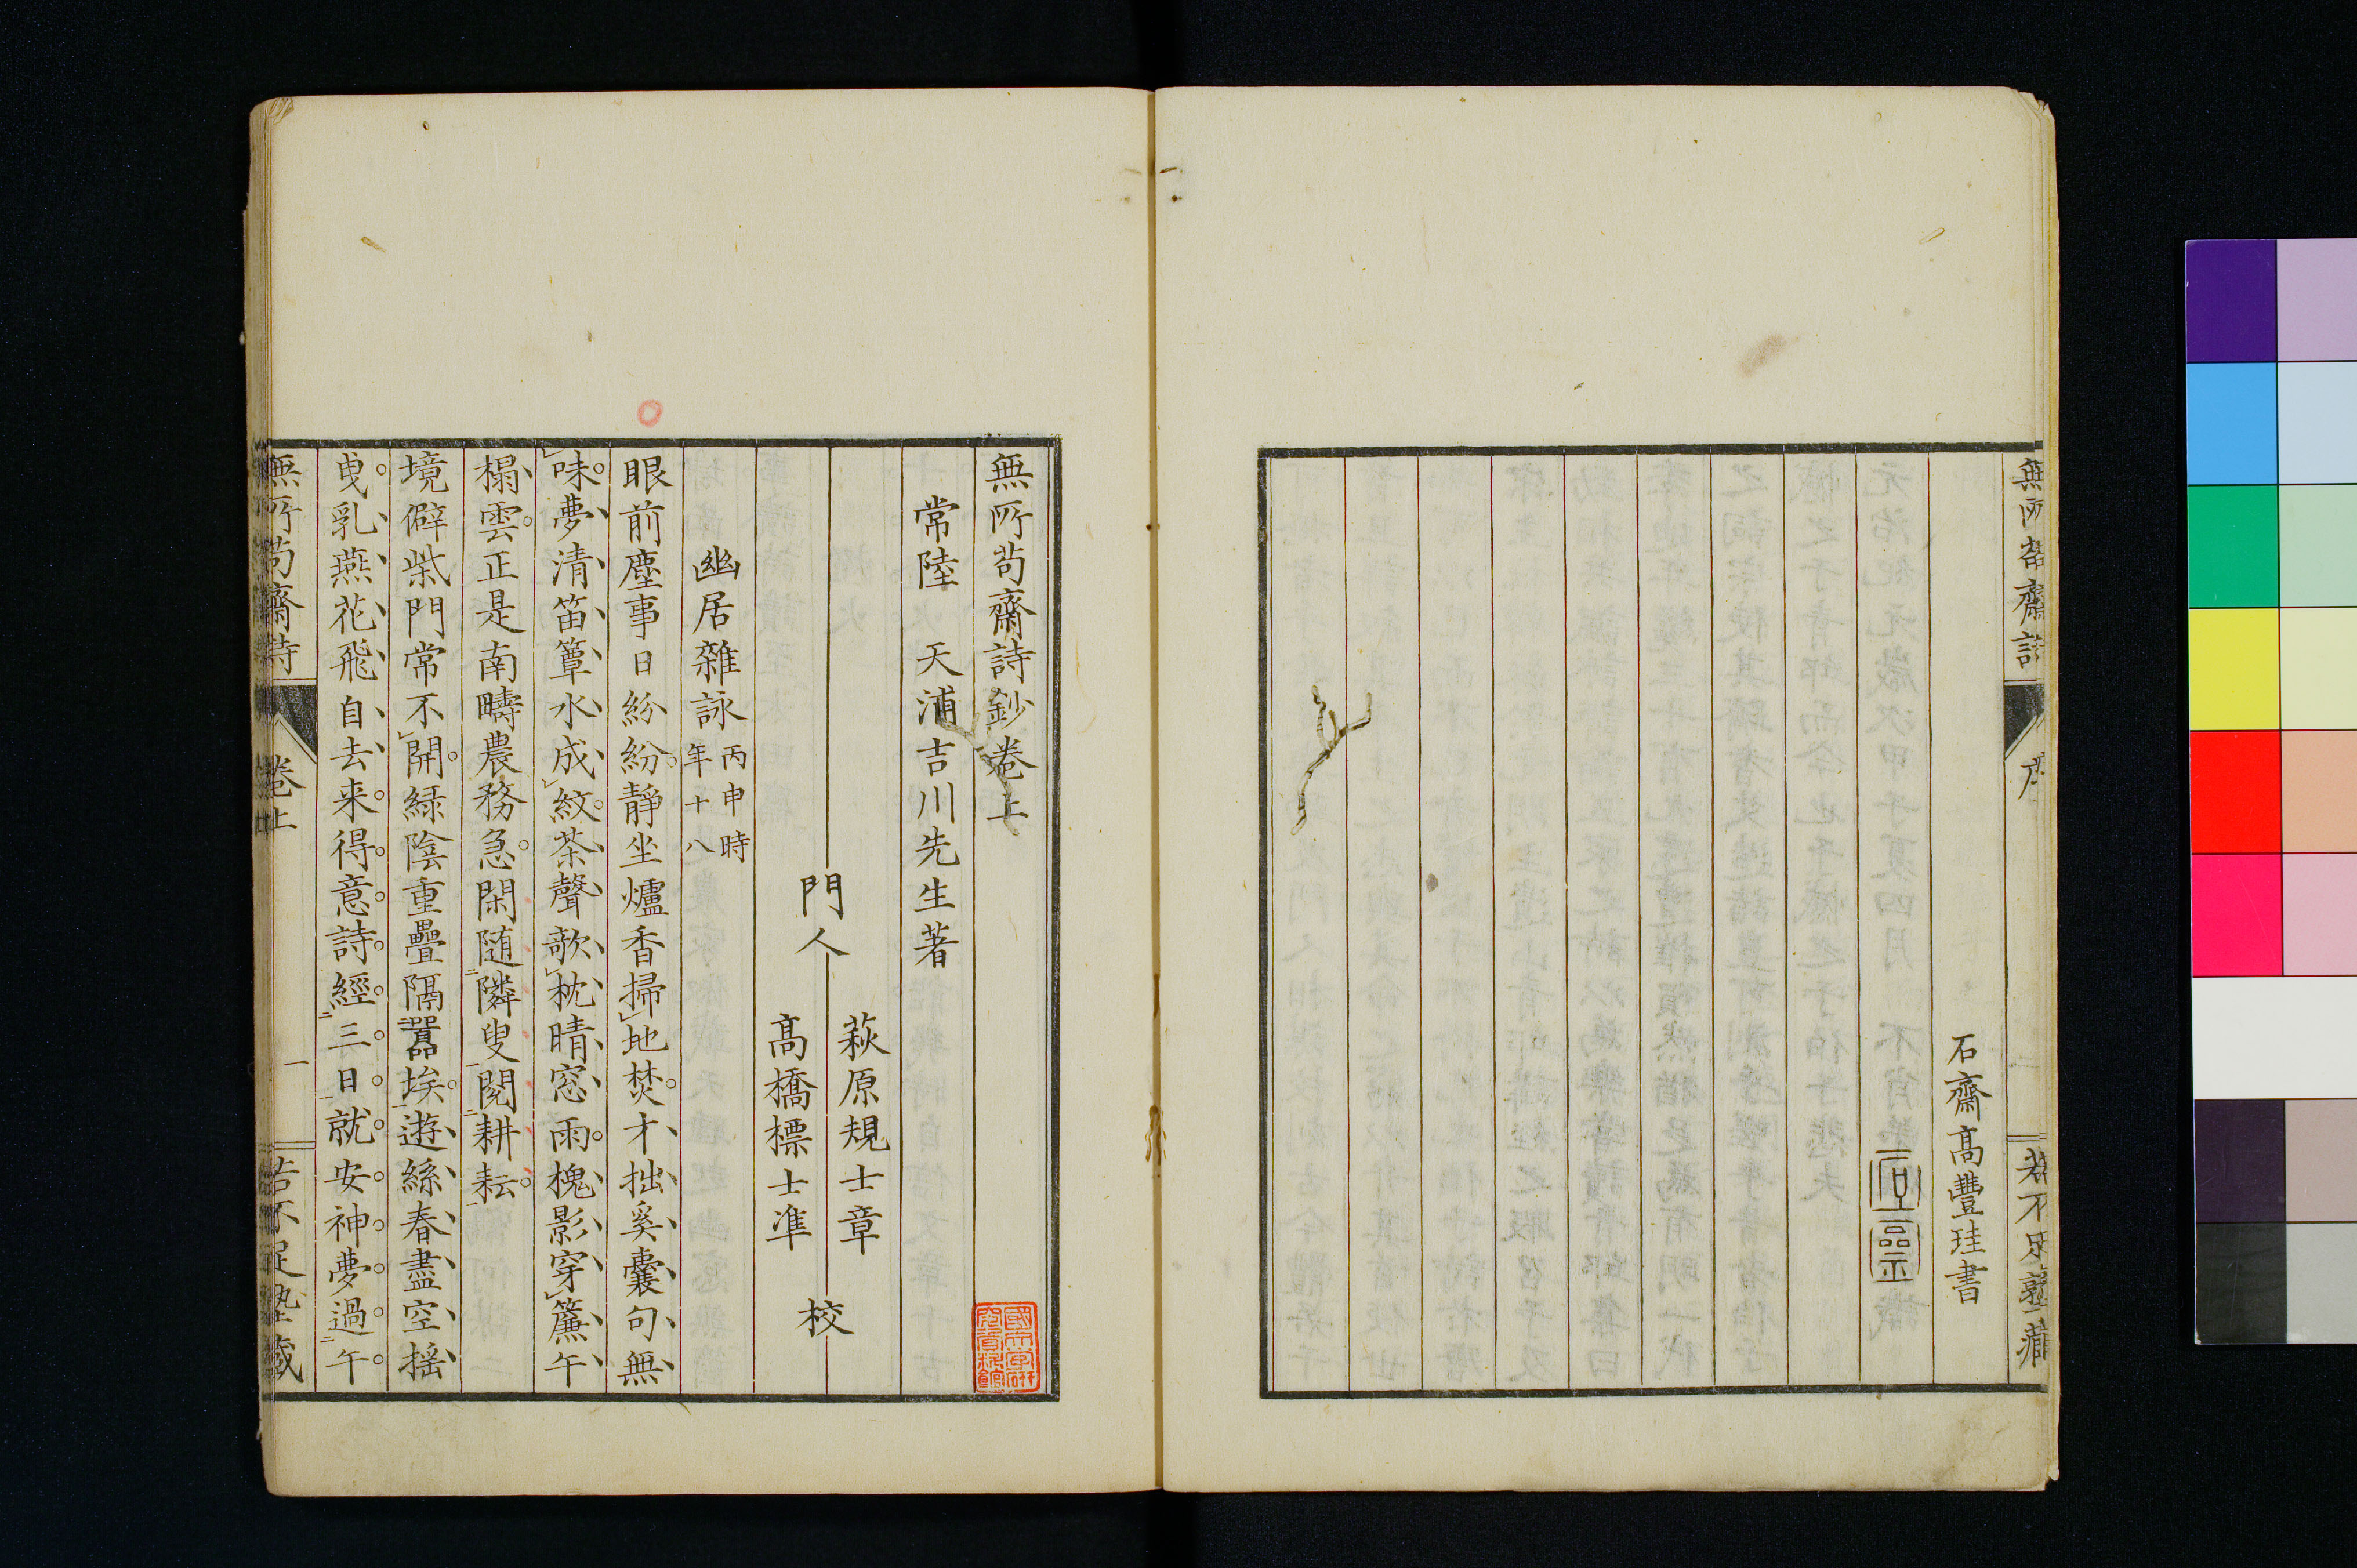 石齋高豐珪書
無所苟齋詩鈔卷上
常陸　天浦吉川先生著
門人
萩原規士章
高橋標士準
校
幽居雜詠
丙申時
年十八
眼前塵事日紛紛靜坐爐香掃地焚才拙奚囊句無
味夢清笛簟水成紋茶聲欹枕晴窓雨槐影穿簾午
榻雲正是南疇農務急閑随隣叟閱耕耘
境僻柴門常不開緑陰重疊隔囂埃遊絲春盡空揺
曳乳燕花飛自去来得意詩經三日就安神夢過午
無所苟齋詩
卷上
一